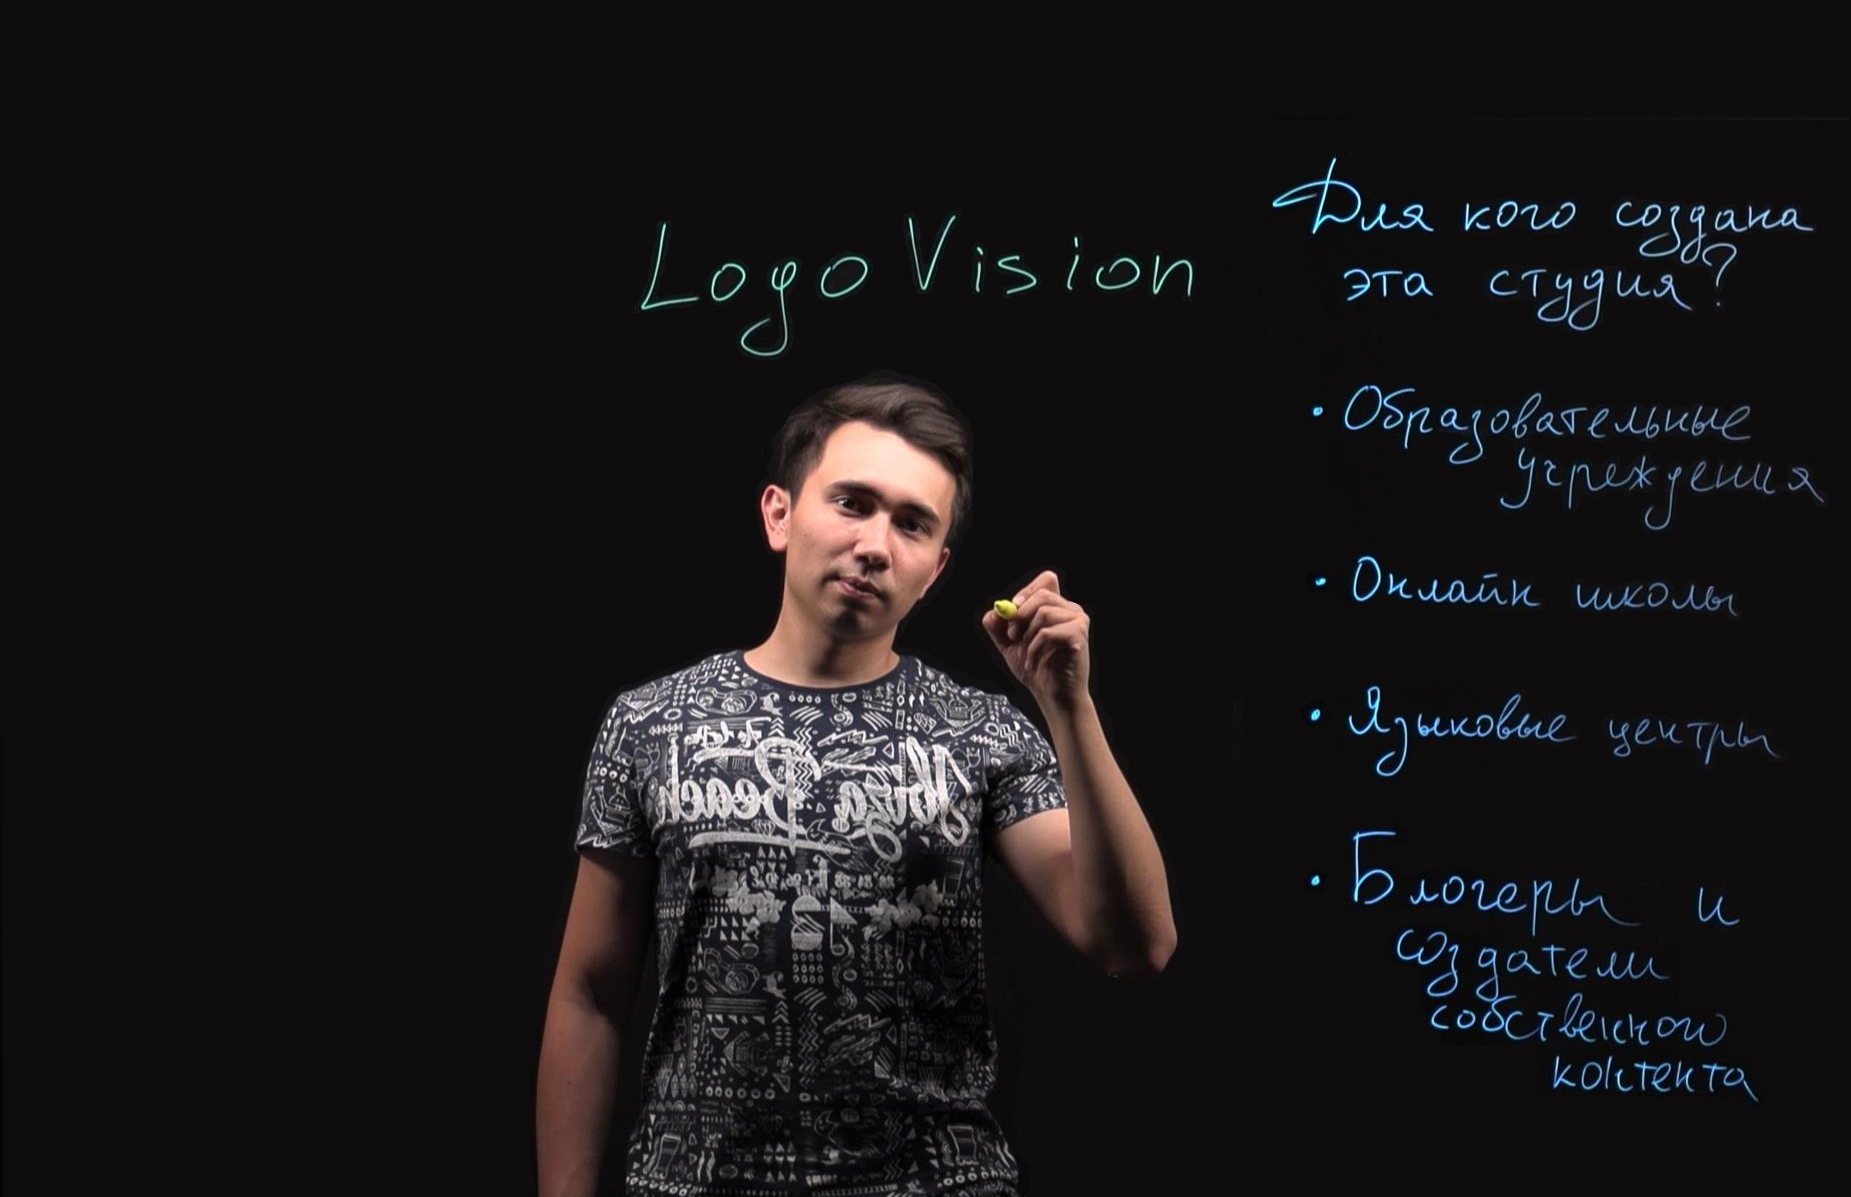 Logo Vision
Для кого создана
эта студия?
• Образовательные
учреждения
• Онлайн школы
• Языковые центры
• Блогеры и
создатели
собственного
контента
Ibiza Beach